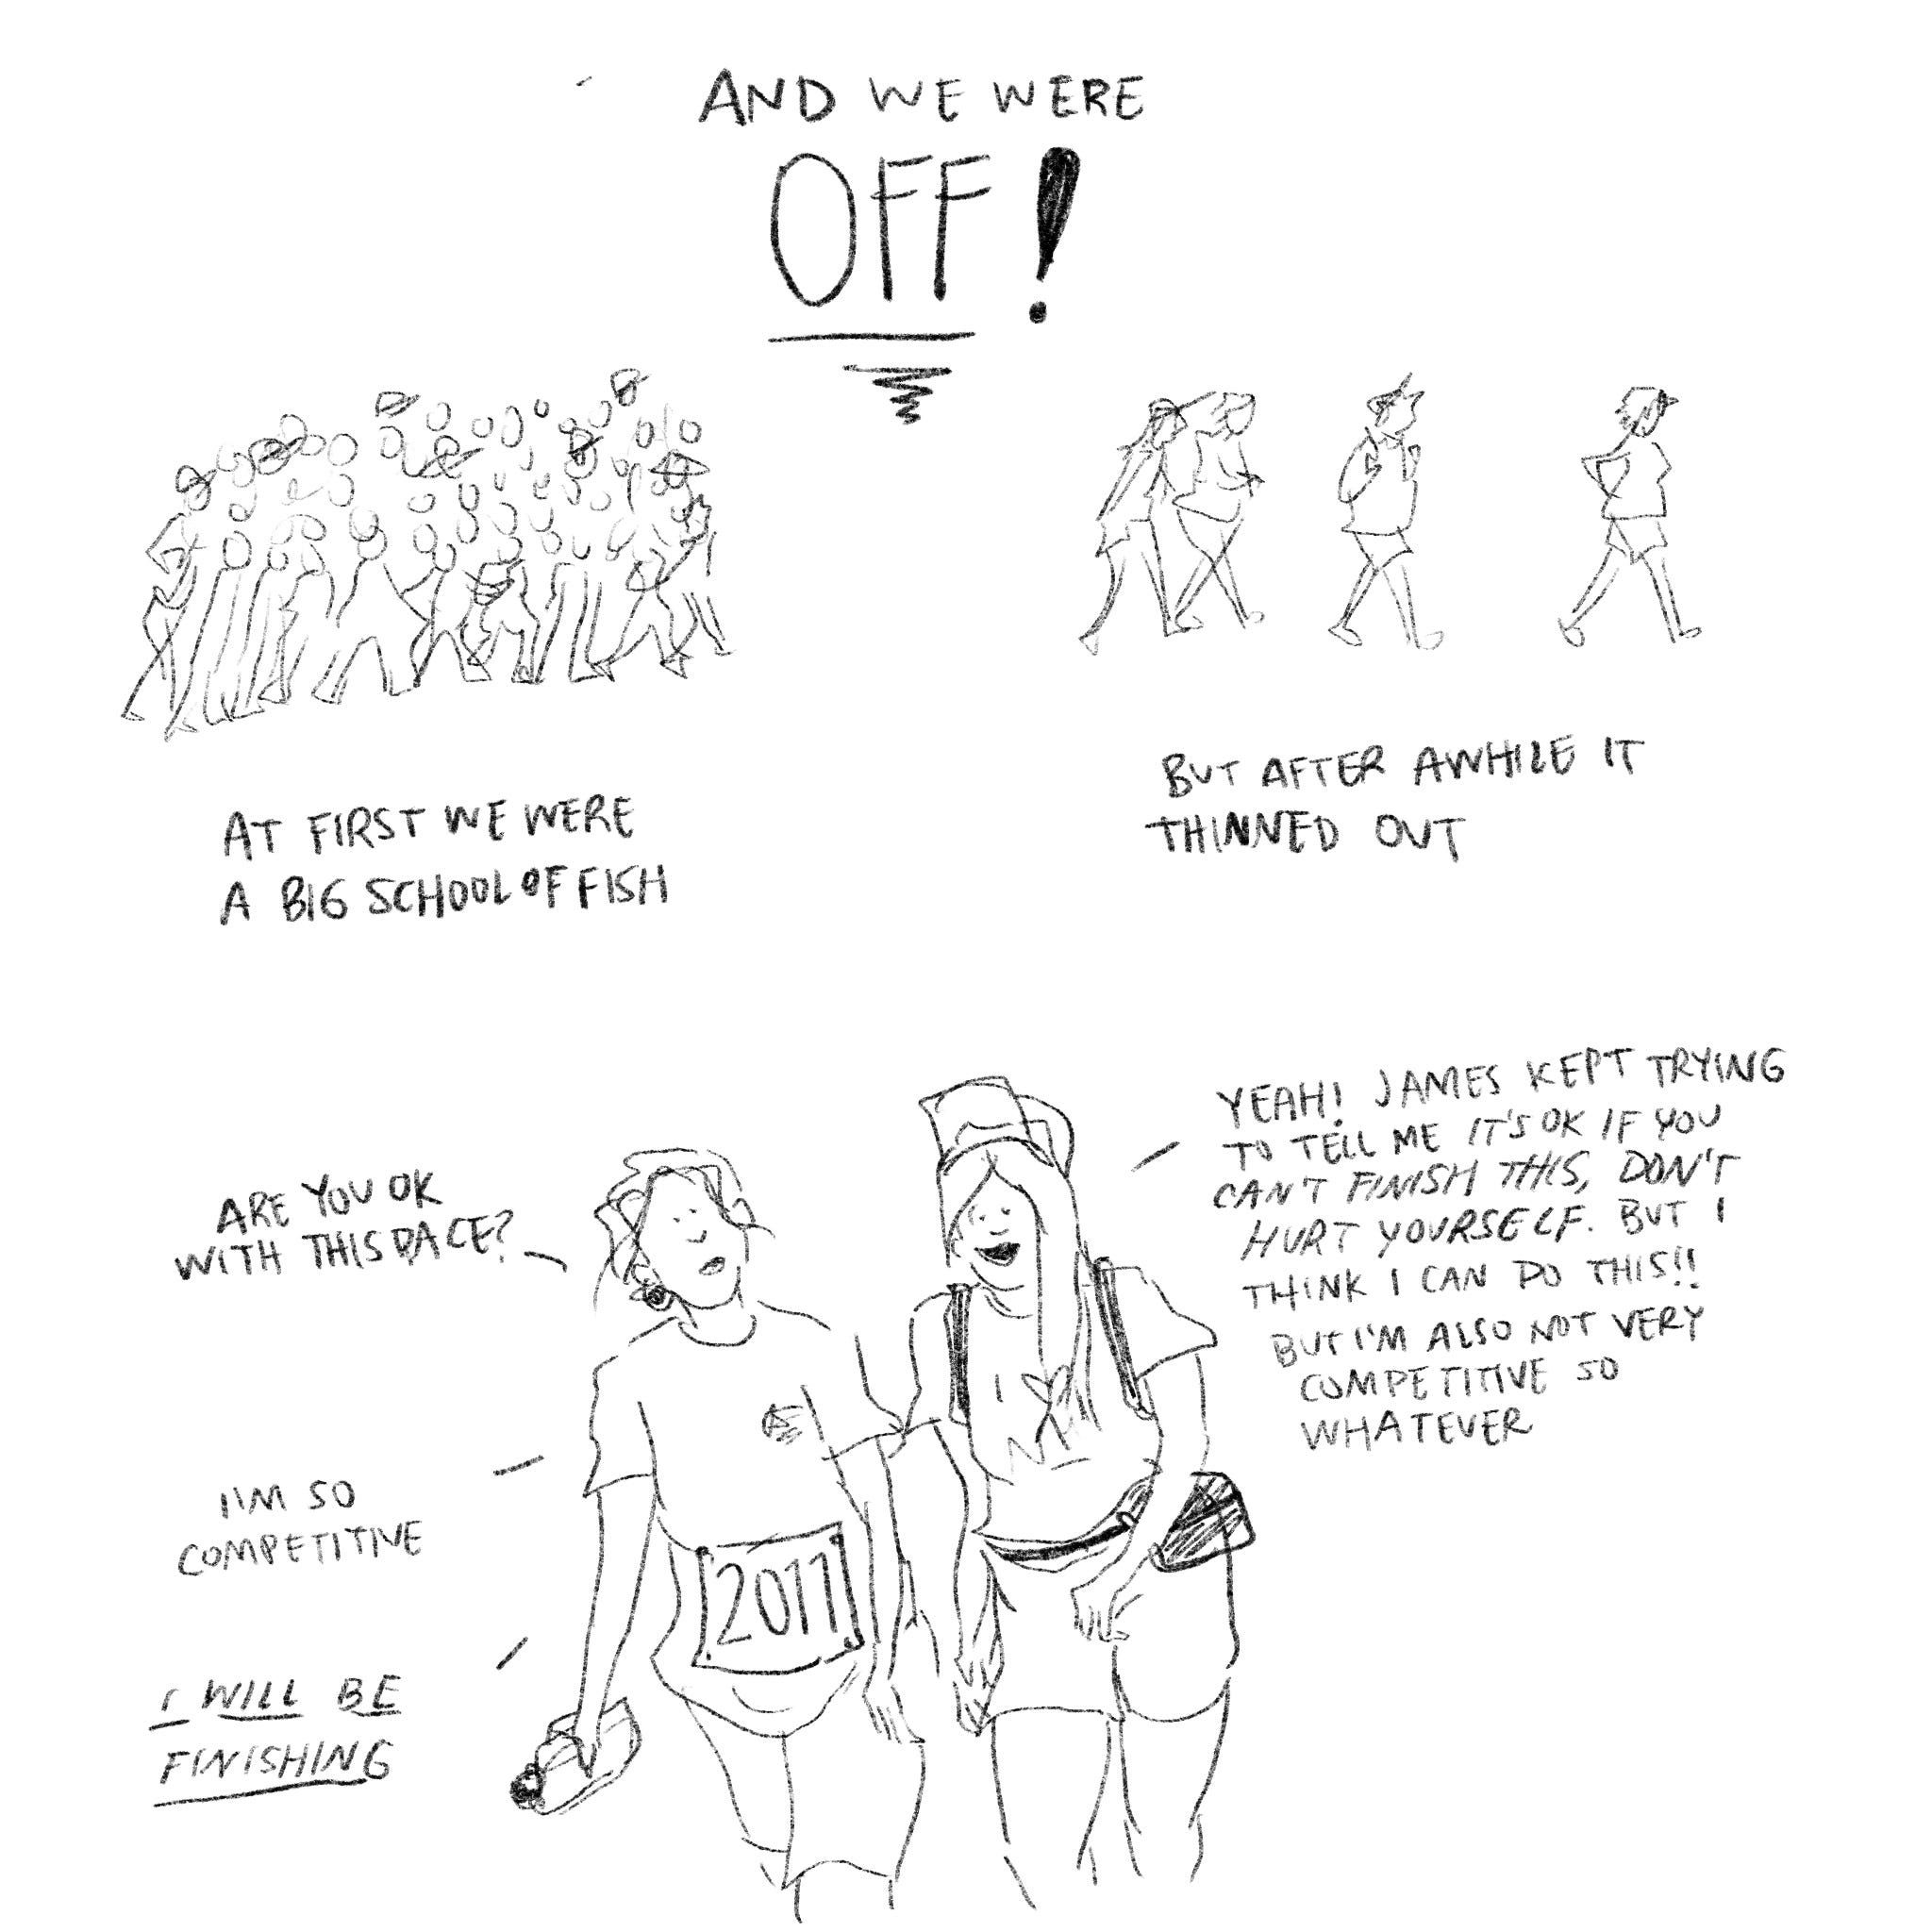 AND WE WERE
OFF!
AT FIRST WE WERE
A BIG SCHOOL OF FISH
BUT AFTER AWHILE IT
THINNED OUT
ARE YOU OK
WITH THIS PACE?
YEAH! JAMES KEPT TRYING
TO TELL ME IT'S OK IF YOU
CAN'T FINISH THIS, DON'T
HURT YOURSELF. BUT I
THINK I CAN DO THIS!!
BUT I'M ALSO NOT VERY
COMPETITIVE SO
WHATEVER
I'M SO
COMPETITIVE
I WILL BE
FINISHING
2011
I
N